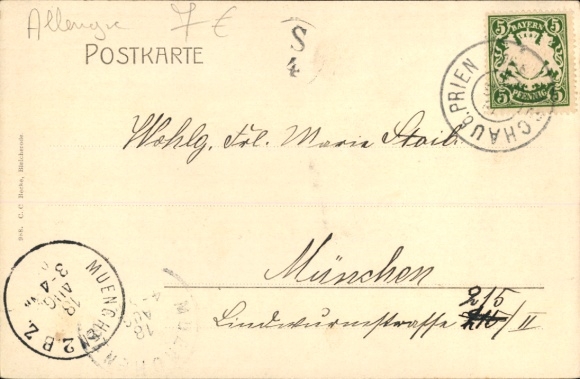 7 €
POSTKARTE
S
4
5 BAYERN 5
5 PFENNIG 5
CHAU & PRIEN
Wohlg. Frl. Marie Stoib.
München
215
Lindwurmstrasse 210/II
MUENCHEN
18 AUG
3-4
2 B Z.
MUENCHEN
18 AUG